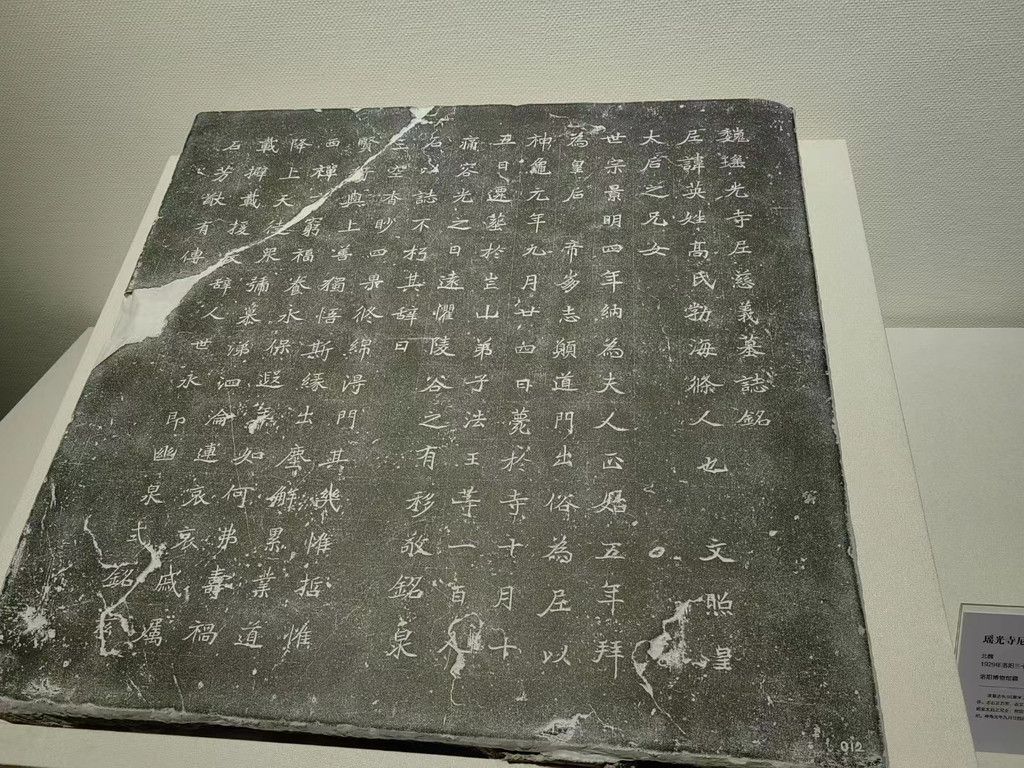 魏瑶光寺尼慈義墓誌銘
尼諱英姓高氏勃海條人也文昭皇
大后之兄女
世宗景明四年納為夫人正始五年拜
為皇后帝崩志願道門出俗為尼以
神龜元年九月廿四日薨於寺十月十
五日遷葬於芒山弟子法王等一百人
痛容光之日遠懼陵谷之有移敬銘泉
石以誌不朽其辞曰
三空杳眇四果攸綿得門其幾惟哲惟
賢與上善獨悟斯緣出塵解累業道
西禪窮福養永保遐年如何弗壽禍
降上天徒眾號慕涕泗淪連哀哀戚屬
載擗載援長辞人世永即幽泉式銘茲
石芳猷有傳
012
瑶光寺尼
北魏
洛阳博物馆藏